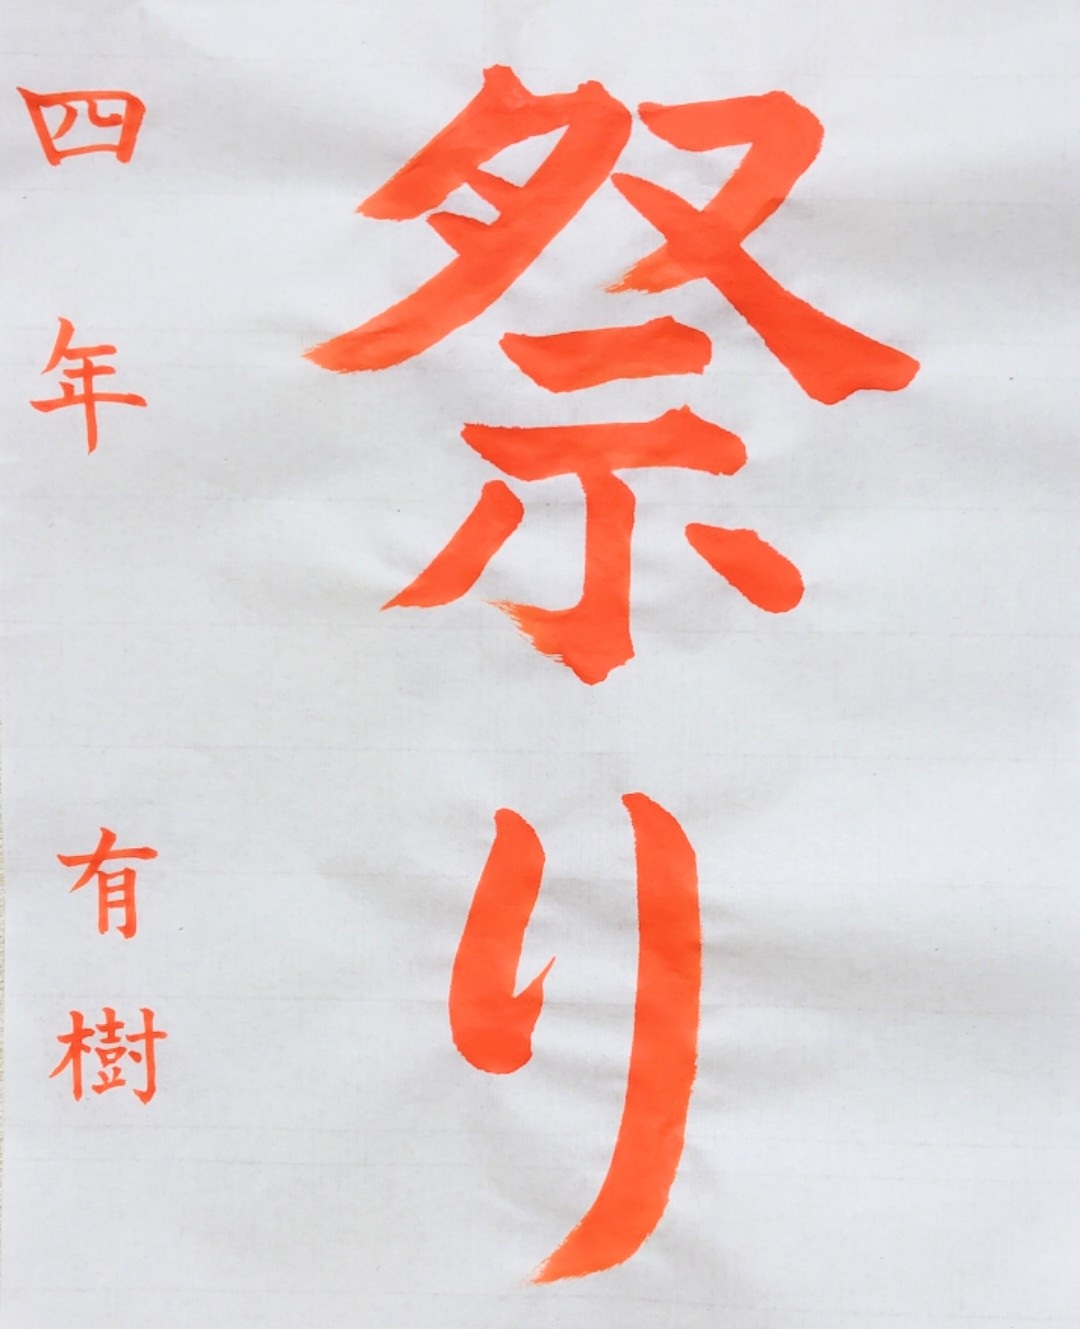 祭り
四年 有樹